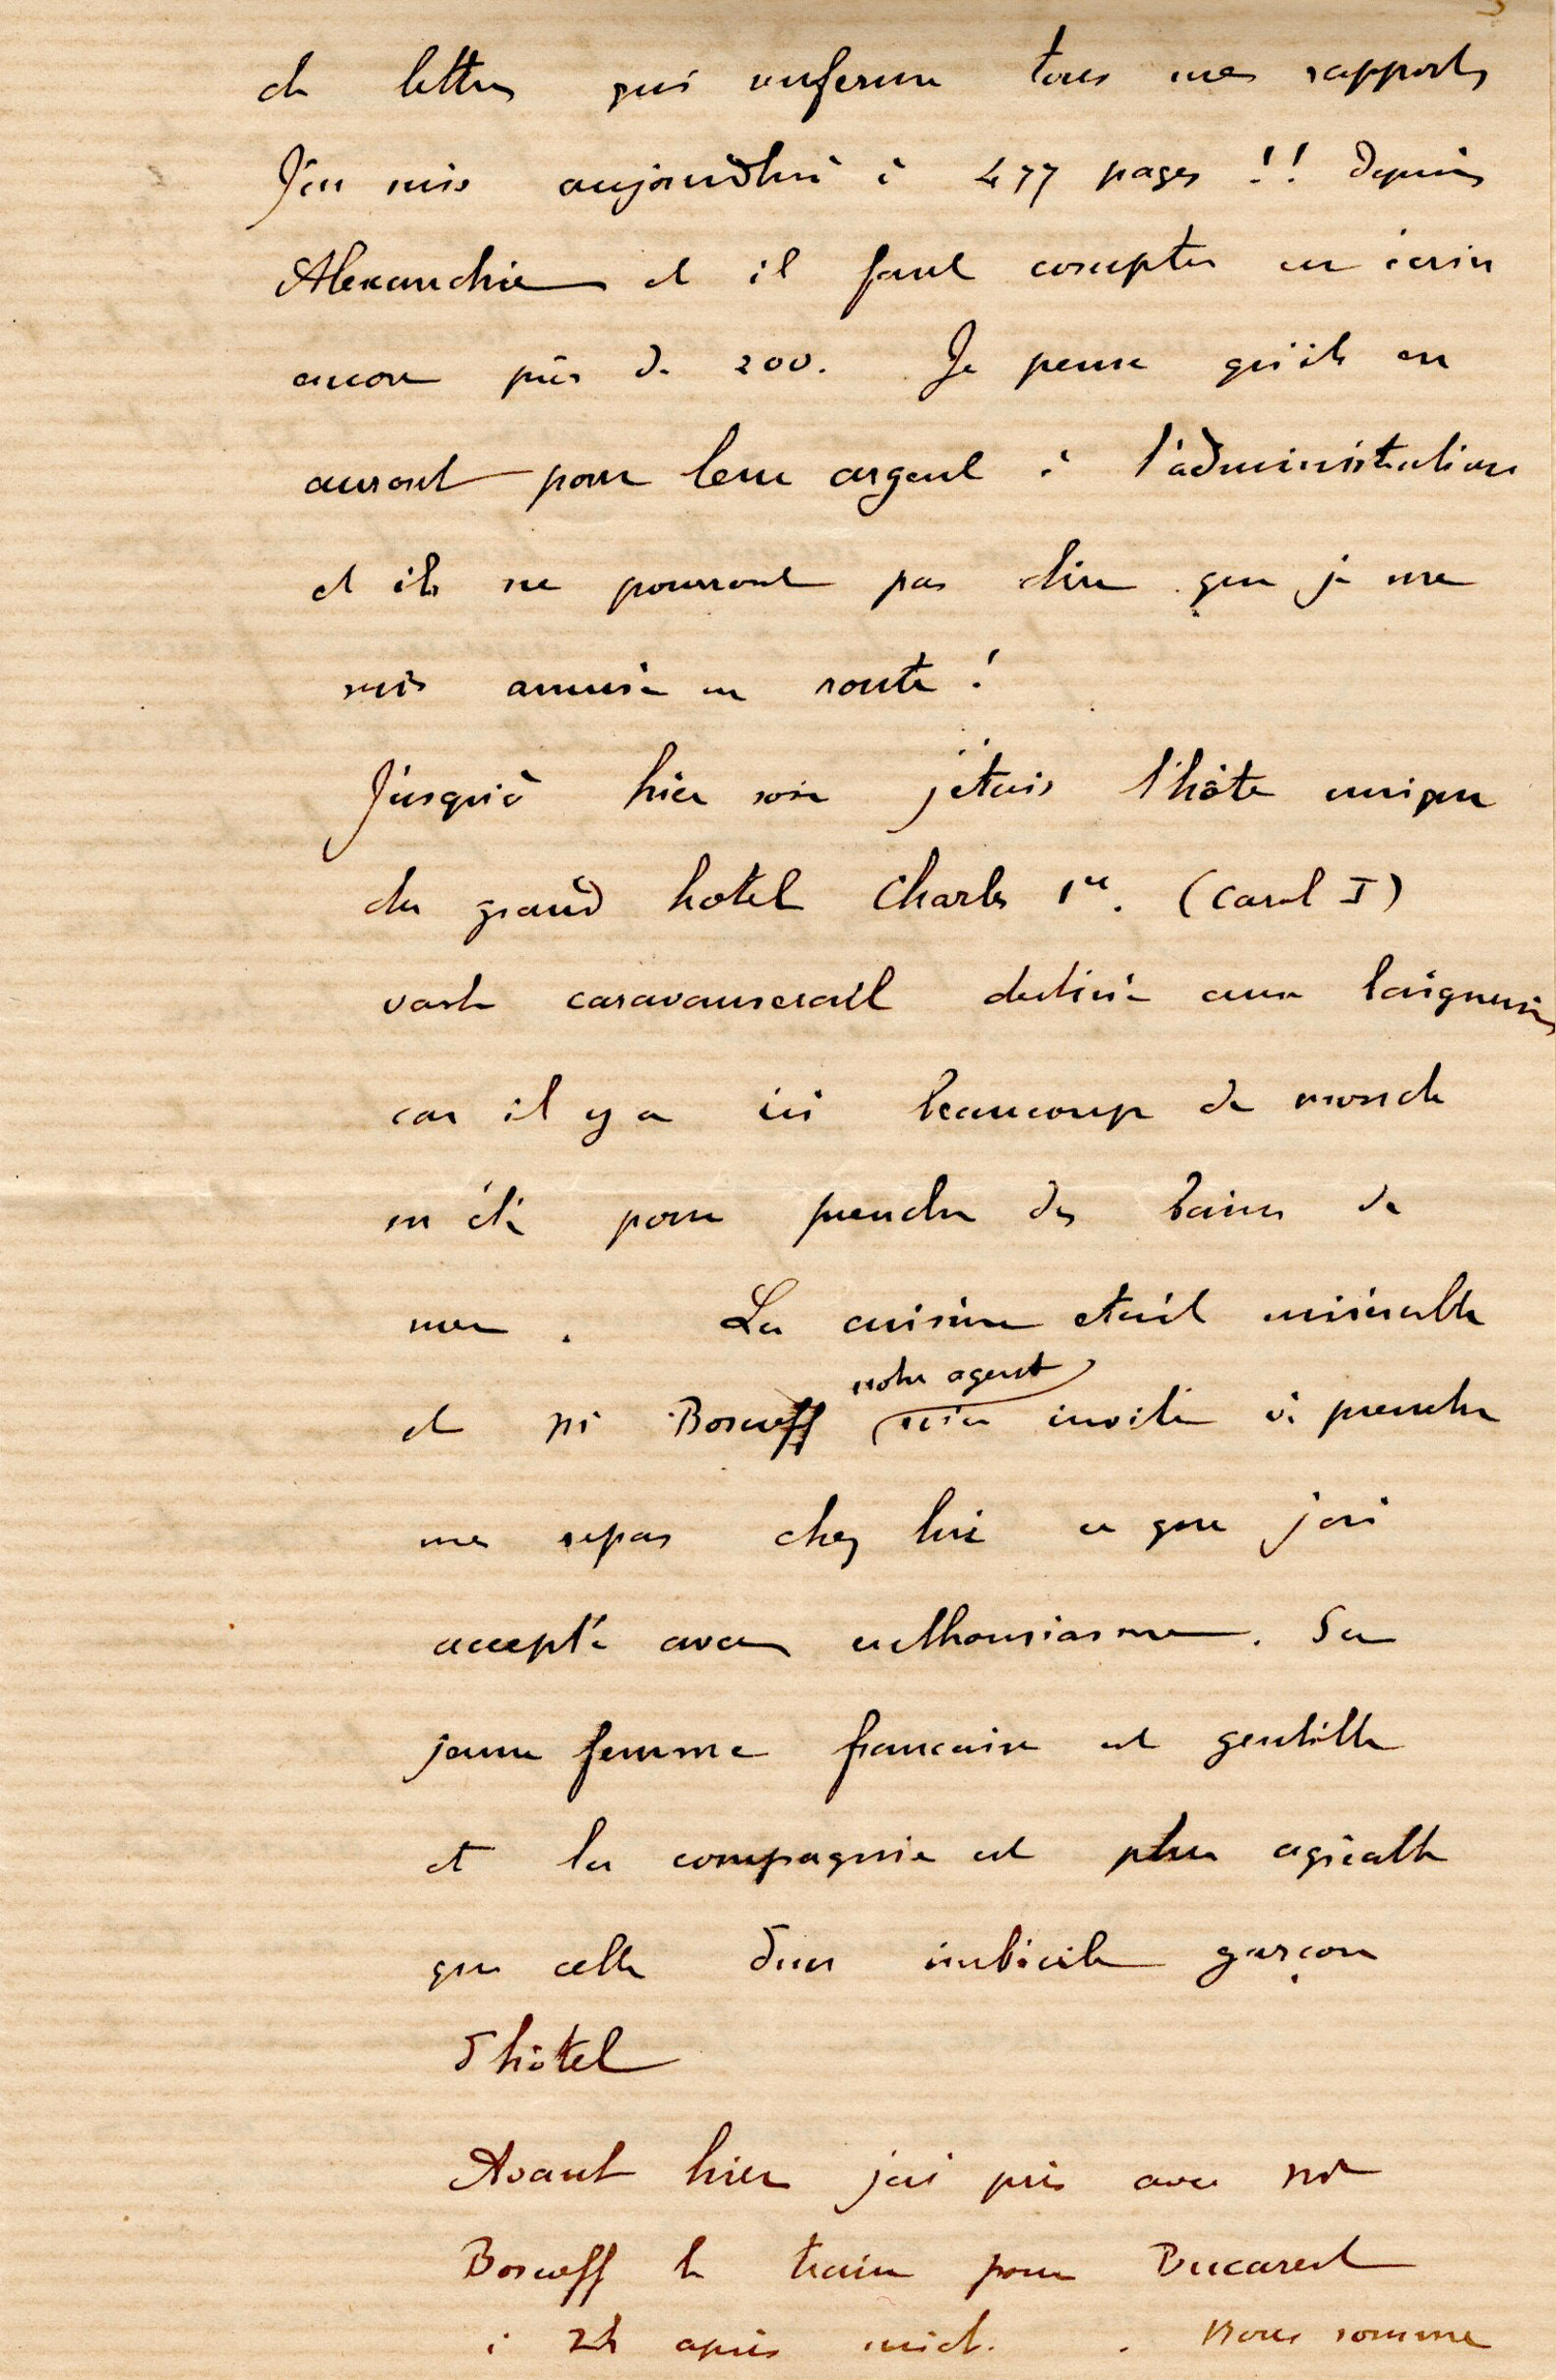 de lettres qui renferme tous mes rapports
J'en suis aujourd'hui à 477 pages !! depuis
Alexandrie et il faut compter en écrire
encore près de 200. Je pense qu'ils en
auront pour leur argent à l'administration
et ils ne pourront pas dire que je me
suis amusé en route !
Jusqu'à hier soir j'étais l'hôte unique
du grand hotel Charles 1er. (Carol I)
vaste caravanserail destiné aux baigneurs
car il y a ici beaucoup de monde
en été pour prendre des bains de
mer. La cuisine etait misérable
notre agent
et Mr Boscoff m'a invité à prendre
mes repas chez lui ce que j'ai
accepté avec enthousiasme. Sa
jeune femme francaise est gentille
et la compagnie est plus agréable
que celle d'un imbécile garçon
d'hôtel
Avant hier j'ai pris avec Mr
Boscoff le train pour Bucarest
à 2h après midi. Nous somme